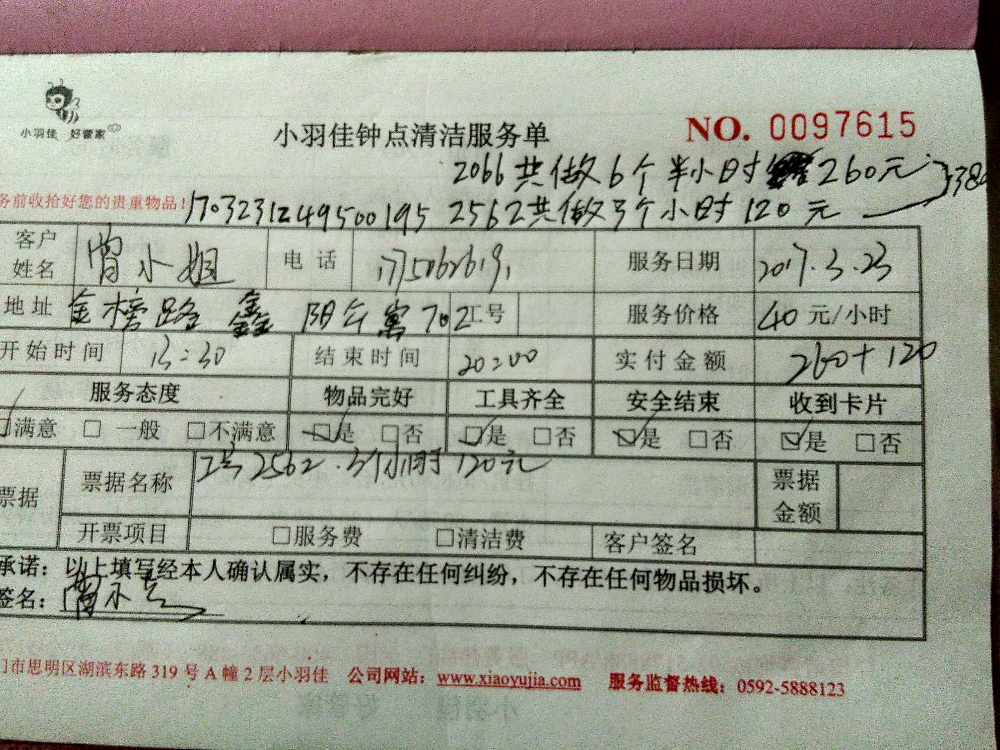 小羽佳 好管家
小羽佳钟点清洁服务单
NO. 0097615
2066共做6个半小时 260元
务前收拾好您的贵重物品!
1703231249500195 2562共做3个小时120元
客户姓名 曾小姐 电话 服务日期 2017.3.23
地址 金榜路鑫阳公寓702 工号 服务价格 40元/小时
开始时间 13:30 结束时间 20:00 实付金额 260+120
服务态度 物品完好 工具齐全 安全结束 收到卡片
满意 □ 一般 □不满意 □是 □否 □是 □否 □是 □否 □是 □否
票据 票据名称 工号2562.3个小时120元 票据金额
开票项目 □服务费 □清洁费 客户签名
承诺：以上填写经本人确认属实，不存在任何纠纷，不存在任何物品损坏。
签名：
门市思明区湖滨东路 319 号 A 幢 2 层小羽佳 公司网站：www.xiaoyujia.com 服务监督热线：0592-5888123